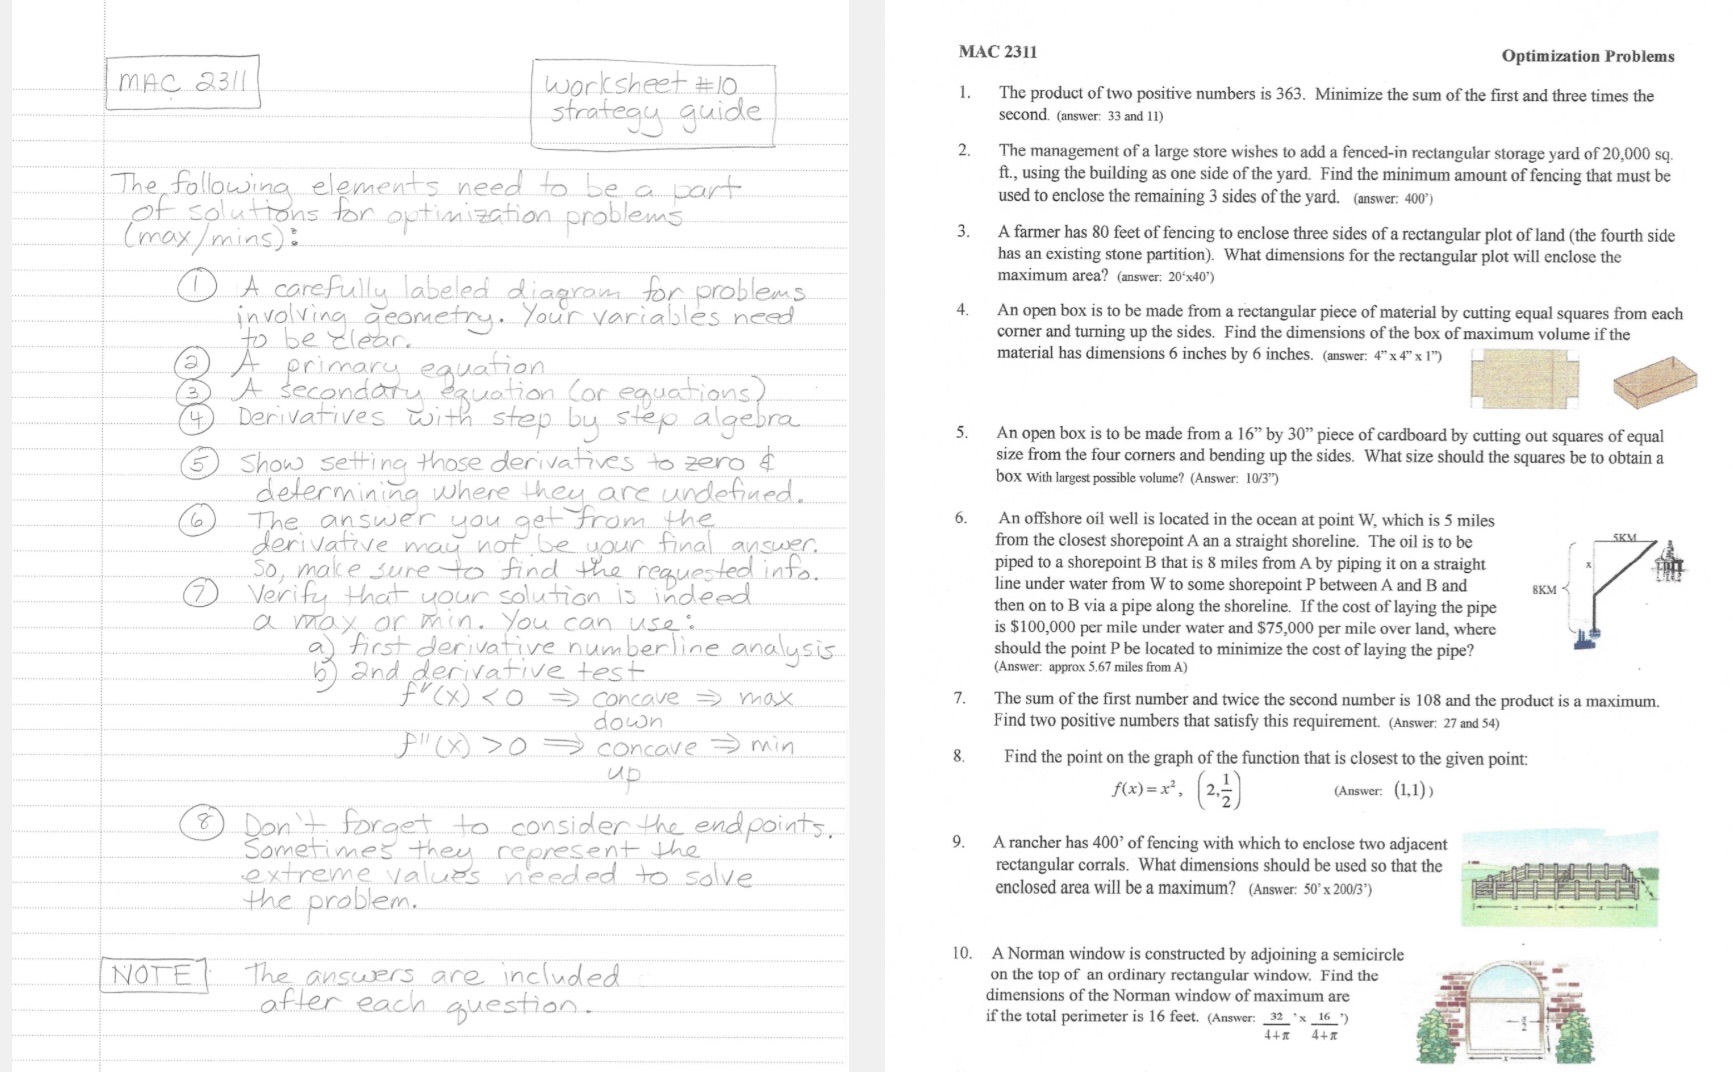 MAC 2311
Worksheet #10
strategy guide
The following elements need to be a part
of solutions for optimization problems
(max/mins):
① A carefully labeled diagram for problems
involving geometry. Your variables need
to be clear.
② A primary equation
③ A secondary equation (or equations)
④ Derivatives with step by step algebra
⑤ Show setting those derivatives to zero &
determining where they are undefined.
⑥ The answer you get from the
derivative may not be your final answer.
So, make sure to find the requested info.
⑦ Verify that your solution is indeed
a max or min. You can use:
a) first derivative numberline analysis
b) 2nd derivative test
f''(x) < 0 ⇒ concave ⇒ max
down
f''(x) > 0 ⇒ concave ⇒ min
up
⑧ Don't forget to consider the endpoints.
Sometimes they represent the
extreme values needed to solve
the problem.
NOTE The answers are included
after each question.
MAC 2311
Optimization Problems
1. The product of two positive numbers is 363. Minimize the sum of the first and three times the
second. (answer: 33 and 11)
2. The management of a large store wishes to add a fenced-in rectangular storage yard of 20,000 sq.
ft., using the building as one side of the yard. Find the minimum amount of fencing that must be
used to enclose the remaining 3 sides of the yard. (answer: 400')
3. A farmer has 80 feet of fencing to enclose three sides of a rectangular plot of land (the fourth side
has an existing stone partition). What dimensions for the rectangular plot will enclose the
maximum area? (answer: 20'x40')
4. An open box is to be made from a rectangular piece of material by cutting equal squares from each
corner and turning up the sides. Find the dimensions of the box of maximum volume if the
material has dimensions 6 inches by 6 inches. (answer: 4" x 4" x 1")
5. An open box is to be made from a 16" by 30" piece of cardboard by cutting out squares of equal
size from the four corners and bending up the sides. What size should the squares be to obtain a
box With largest possible volume? (Answer: 10/3")
6. An offshore oil well is located in the ocean at point W, which is 5 miles
from the closest shorepoint A an a straight shoreline. The oil is to be
piped to a shorepoint B that is 8 miles from A by piping it on a straight
line under water from W to some shorepoint P between A and B and
then on to B via a pipe along the shoreline. If the cost of laying the pipe
is $100,000 per mile under water and $75,000 per mile over land, where
should the point P be located to minimize the cost of laying the pipe?
(Answer: approx 5.67 miles from A)
5KM
x
8KM
7. The sum of the first number and twice the second number is 108 and the product is a maximum.
Find two positive numbers that satisfy this requirement. (Answer: 27 and 54)
8. Find the point on the graph of the function that is closest to the given point:
f(x) = x², (2, 1/2) (Answer: (1,1))
9. A rancher has 400' of fencing with which to enclose two adjacent
rectangular corrals. What dimensions should be used so that the
enclosed area will be a maximum? (Answer: 50' x 200/3')
x x
10. A Norman window is constructed by adjoining a semicircle
on the top of an ordinary rectangular window. Find the
dimensions of the Norman window of maximum are
if the total perimeter is 16 feet. (Answer: 32/4+π ' x 16/4+π ')
x